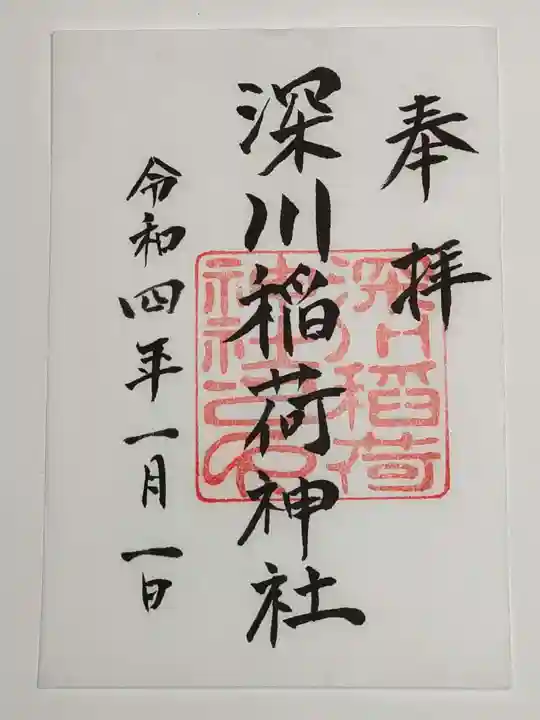 奉拝
深川稲荷神社
令和四年一月一日
深川稲荷
神社